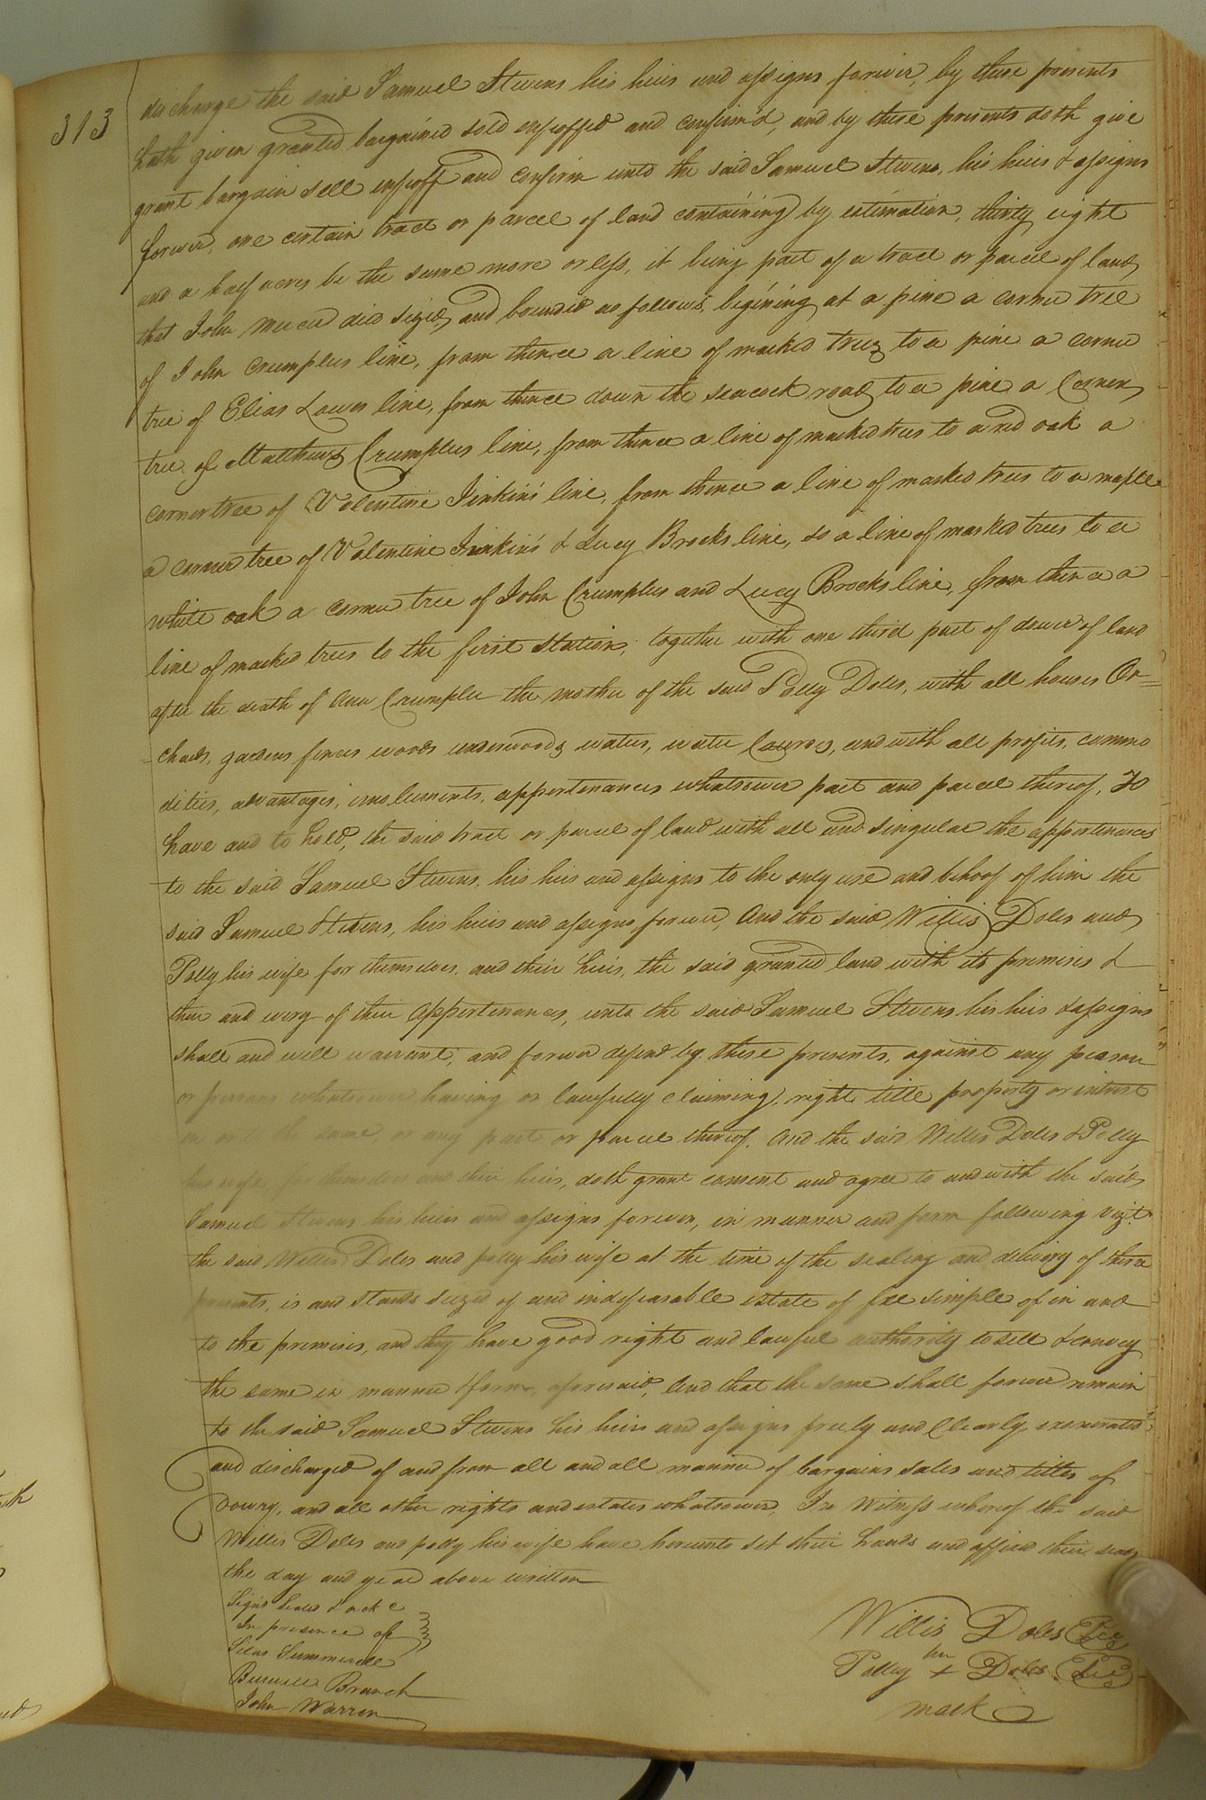 313
discharge the said Samuel Stevens his heirs and assigns forever, by these presents
hath given granted bargained sold enfeoffed and confirm'd, and by these presents doth give
grant bargain sell enfeoff and confirm unto the said Samuel Stevens, his heirs & assigns
forever, one certain tract or parcel of land containing by estimation, thirty eight
and a half acres be the same more or less, it being part of a tract or parcel of land
that John did and bounded as follows, begining at a pine a corner tree
of John Crumplers line, from thence a line of marked trees to a pine a corner
tree of Elias Lawes line, from thence down the seacock road to a pine a Corner
tree of Matthews Crumplers line, from thence a line of marked trees to a red oak a
corner tree of Valentine Jinkins' line, from thence a line of marked trees to a maple
a corner tree of Valentine Jinkins & Lucy Brocks line, so a line of marked trees to a
white oak a corner tree of John Crumpler and Lucy Brocks line, from thence a
line of marked trees to the first Station, together with one third part of dower of land
after the death of Ann Crumpler the mother of the said Polly Doles, with all houses Or=
chards, gardens fences woods underwoods waters, water Courses, and with all profits, commo
dities, advantages, emoluments, appertenances whatsoever part and parcel thereof, To
have and to hold, the said tract or parcel of land with all and singular the appertenances
to the said Samuel Stevens, his heirs and assigns to the only use and behoof of him the
said Samuel Stevens, his heirs and assigns forever, And the said Willis Doles and
Polly his wife for themselves, and their heirs, the said granted land with its premises &
their and every of their Appertenances, unto the said Samuel Stevens his heirs & assigns
shall and will warrant, and forever defend by these presents, against any person
or persons whatsoever having or lawfully claiming, right title property or interest
in or to the same, or any part or parcel thereof. And the said Willis Doles & Polly
his wife for themselves and their heirs, doth grant consent and agree to and with the said
Samuel Stevens his heirs and assigns forever, in manner and form following vizt.
the said Willis Doles and polly his wife at the time of the sealing and delivery of these
presents, is and stands seized of and indefeasable estate of fee simple of in and
to the premises, and they have good right and lawful authority to sell & convey
the same in manner & form, aforesaid, And that the same shall forever remain
to the said Samuel Stevens his heirs and assigns freely and Clearly exonerated
and discharged of and from all and all manner of bargains sales and titles of
Dowry, and all other rights and estates whatsoever, In Witness whereof the said
Willis Doles and polly his wife have hereunto set their hands and affixed their seals
the day and year above written
Sign'd Sealed &
In presence of
Silas Summerell
Burwell Branch
John Warren
Willis Doles
her
Polley + Doles
mark